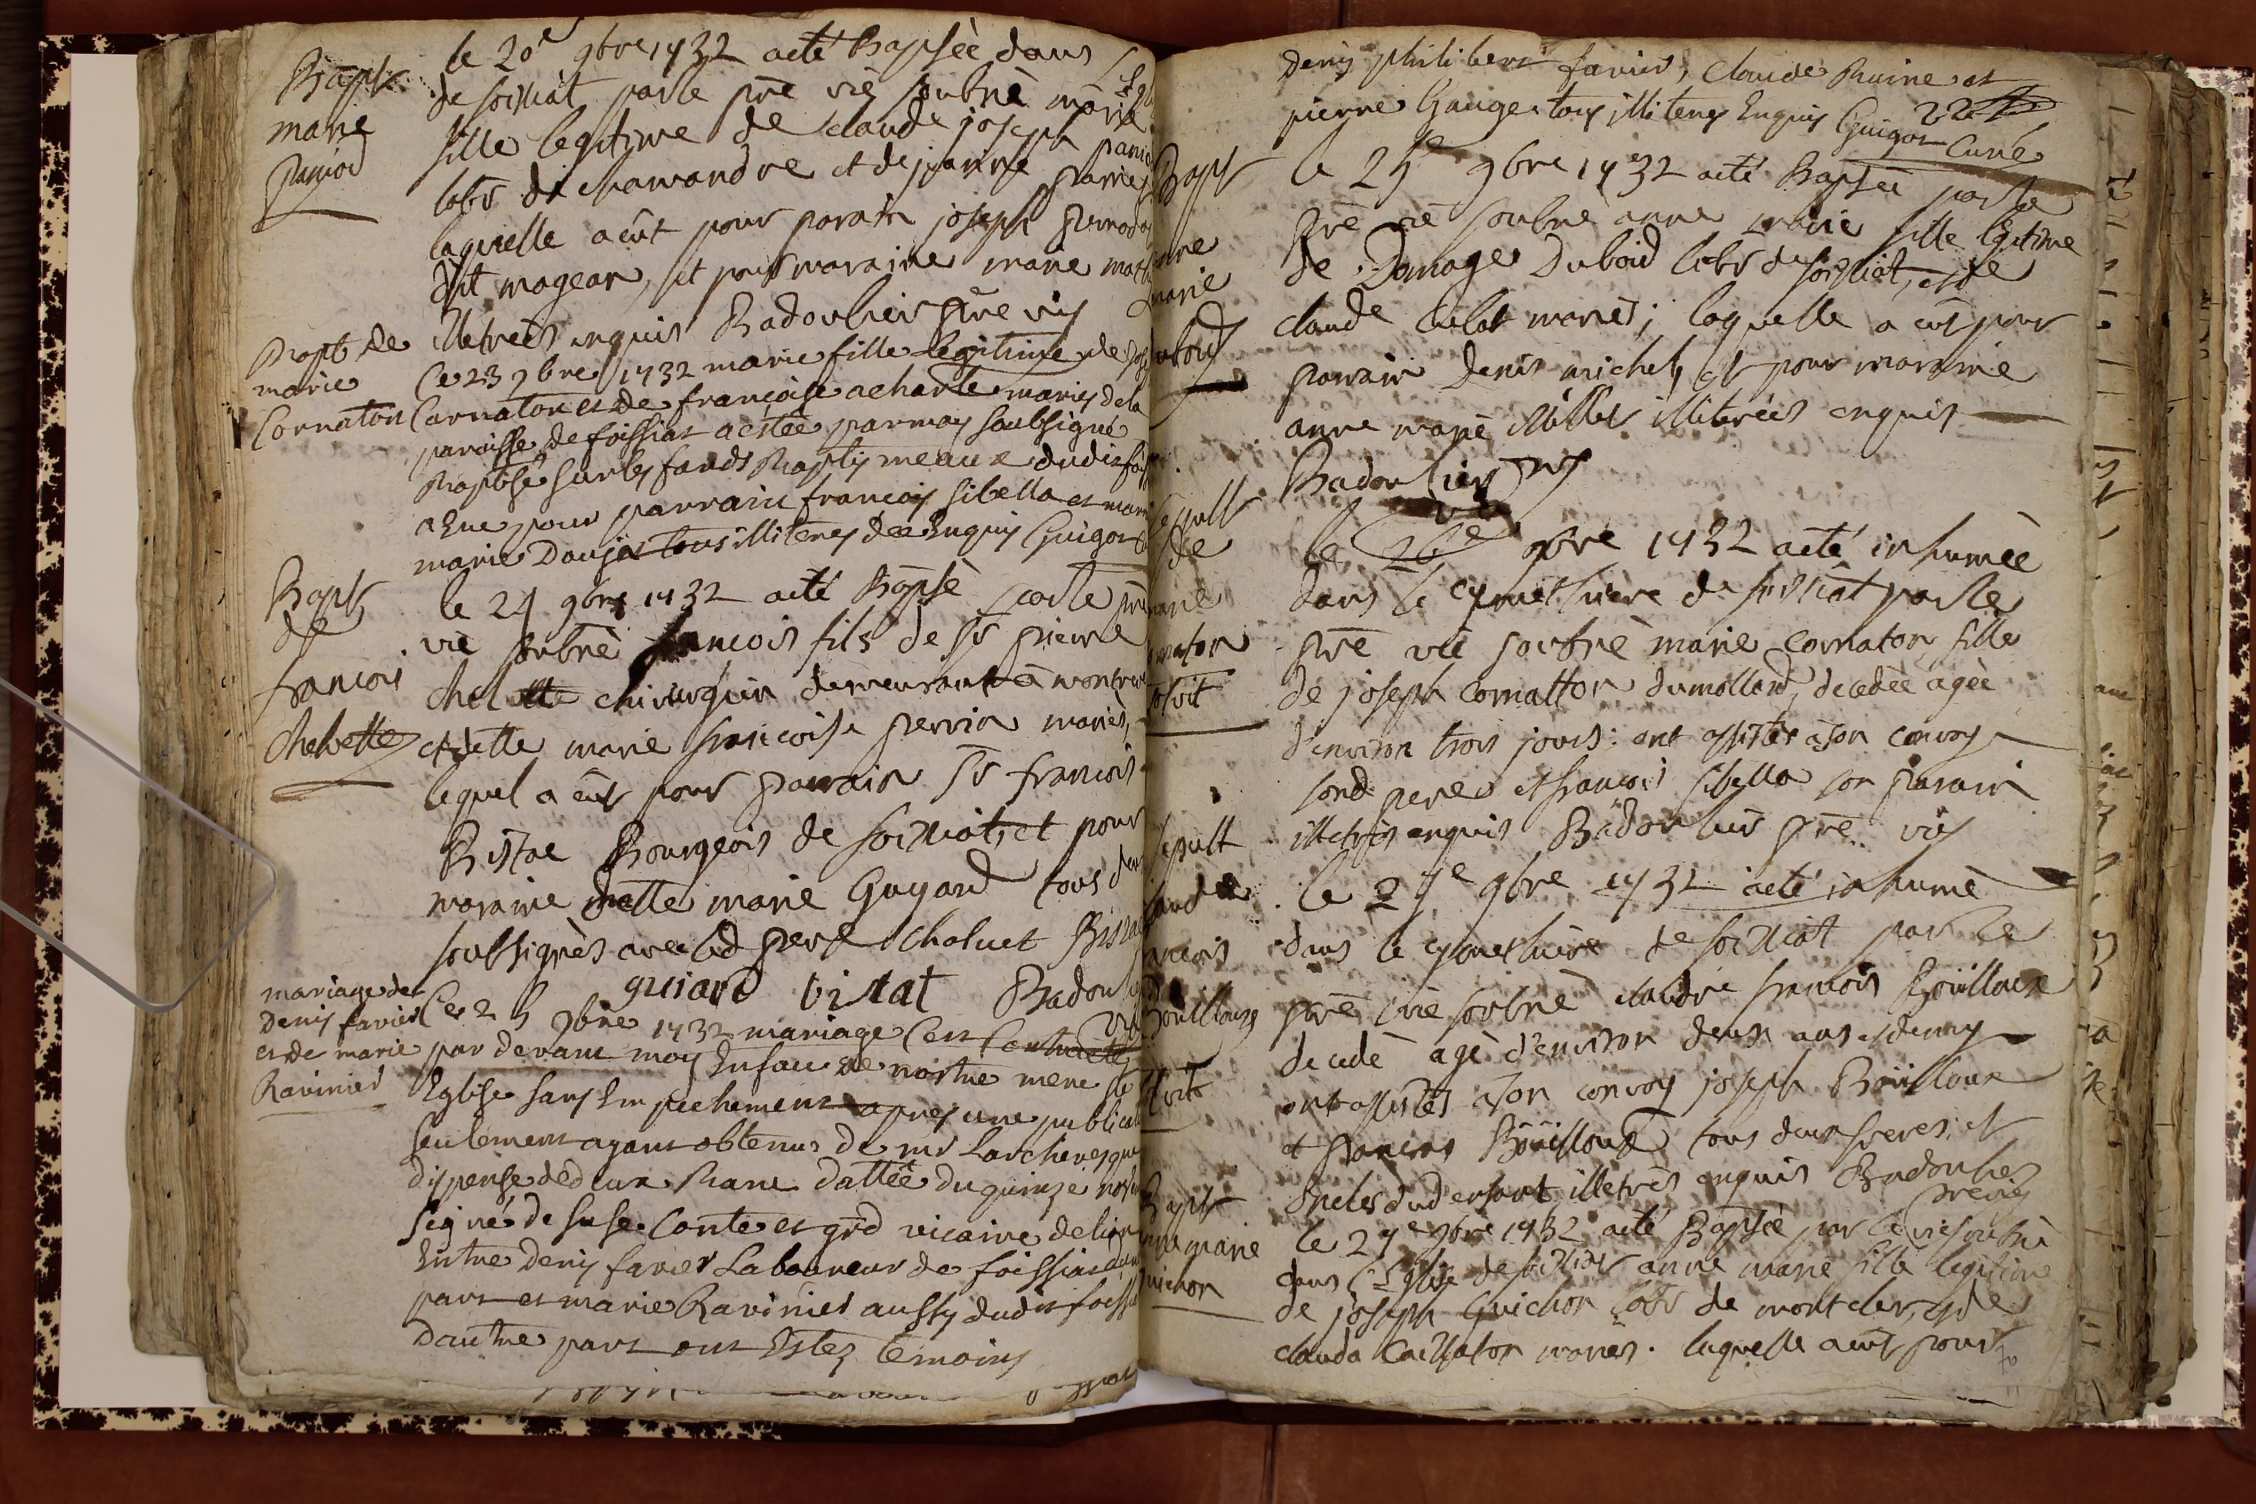 Bapt
marie
paniod
le 20e 9bre 1732 a eté Bapsée dans l'Egl
de foissiat par le pre vic soubné marie
fille legitime de claude joseph panio
labr de chamandre et de jeanne mariez
laquelle a eût pour parain joseph
dit magean, et pour maraine marie
illetrées enquis Badoulier pre vic
Bapt de
marie
Cornaton
Ce 23 9bre 1732 marie fille legitime de
Cornaton et de françoise acharle mariez de la
paroisse de foissiat a estée par moy soubsigné
Baptisé sur les fonds Baptismeaux dudit foi
a Eue pour parrain françois sibella et marr
marie Doujat tous illiterez de ce Enquis Guigot
Bapt
de
francois
Chelvette
le 24 9bre 1732 a eté Bapsé par le pre
vic soubné francois fils de sr pierre
chelvette chirurgien demeurant à montre
et delle marie francoise perrin mariés,
lequel a eût pour parrain sr francois
Bistac Bourgeois de foissiat, et pour
maraine delle marie Guyard tous deux
soussignés avec led pere Choluet Bistac
guiard bistat Badoulier
mariage de
Denis favier
et de marie
Ravinier
Ce 25 9bre 1732 mariage Cest Contracté
par devant moy En face de nostre mere ste
Eglise sans Empechement apres une publicat
seulement ayant obtenus de mr Larcheveque
dispense de deux Bans dattée du quinze nov
signé de suse Conte et grd vicaire de lion
Entre denis favier Laboureur de foissiat d'une
part et marie Ravinier aussy dudit foissi
dautre part ont Estez temoins
denis philibert favier, Claude Ruine et
pierre Gauge tous illiterez Enquis Guigot Curé
Bapt
anne
marie
duboid
le 25e 9bre 1732 a eté Bapsée par le
pre vic soubné anne marie fille legitime
de Domage Duboid labr de foissiat, et de
claude mariés; laquelle a eût pour
parain denis michel, et pour maraine
anne marie illitrées enquis
Badoulier vic
sepult
de
marie
cornaton
le 26e 9bre 1732 a eté inhumée
dans le cymethiere de foissiat par le
pre vic soubné marie Cornaton fille
de joseph Cornatton dumollard, decedée agée
d'environ trois jours: ont assistés a son convoy
sond pere et francois sibella son parain
illetrés enquis Badoulier pre vic
sepult
claude
francois
Bouilloux
le 27e 9bre 1732 a eté inhumé
dans le cymethiere de foissiat par le
pre vic soubné claude francois Boüilloux
decedé agé d'environ deux ans et demy
ont assistés a son convoy joseph Boüilloux
et francois Boüilloux tous deux freres, et
oncles dud enfant illetrés enquis Badoulier
pre vic
Bapt
anne marie
Guichon
le 27e 9bre 1732 a eté Bapsée par le vic soubné
dans l'Eglise de foissiat anne marie fille legitime
de joseph Guichon labr de montcler, et de
clauda Caillaton mariés. laquelle a eût pour